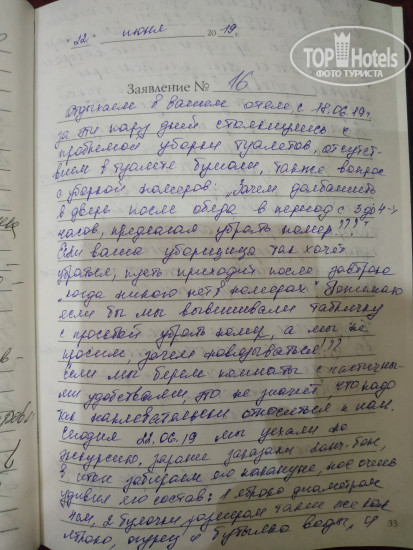 TOP Hotels
ФОТО ТУРИСТА
"22" июня 2019 г.
Заявление № 16
Отдыхаем в вашем отеле с 18.06.19г
за эти пару дней столкнулись с
проблемой уборки туалетов, отсутст-
вием в туалете бумаги, также вопрос
с уборкой номеров: "Зачем долбашить
в дверь после обеда в период с 3 до 4-х
часов, предлагая убрать номер???"
Если ваша уборщица так хочет
убраться, пусть приходит после завтрака
когда никого нет в номерах. Понимаю
если бы мы вывешивали табличку
с просьбой убрать номер, а мы не
просим, зачем навязываться!!?
Если мы берем комнаты с частичны-
ми удобствами, это не значит, что надо
так наплевательски относиться к нам.
Сегодня 22.06.19 мы уехали на
экскурсию, заранее заказали ланч-бокс,
в итоге забираем его накануне, нас очень
удивил его состав: 1 яблоко диаметром
4см, 2 булочки размером также как
яблоко, огурец и бутылка воды, и
33